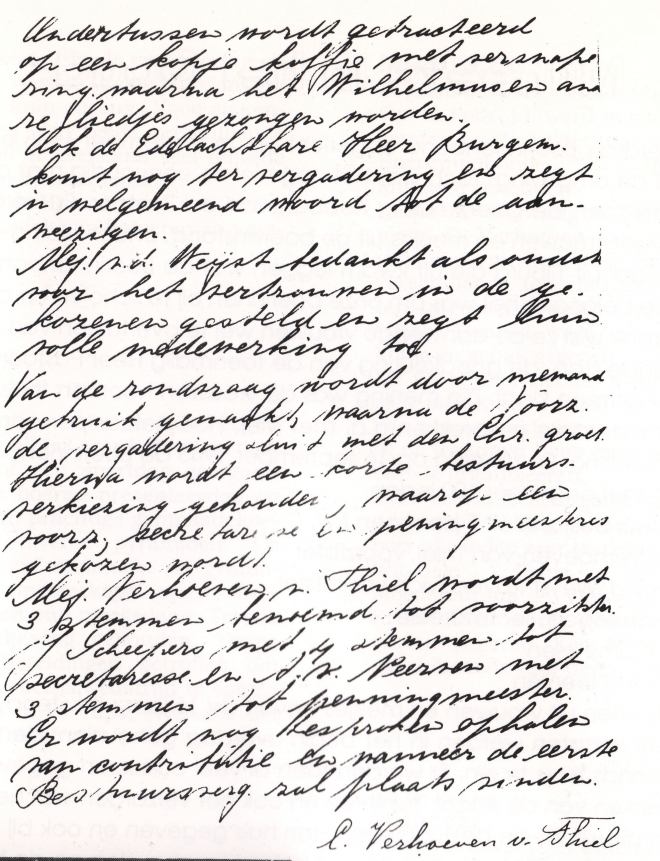 Ondertussen wordt getracteerd
op een kopje koffie met versnape
ring waarna het Wilhelmus en and
re liedjes gezongen worden.
Ook de Edelachtbare Heer Burgem.
komt nog ter vergadering en zegt
'n welgemeend woord tot de aan-
weezigen.
Mej. v.d. Weijst bedankt als oudst
voor het vertrouwen in de ge-
kozenen gesteld en zegt hun
volle medewerking toe
Van de rondvraag wordt door niemand
gebruik gemaakt, waarna de Voorz.
de vergadering sluit met den Chr. groet.
Hierna wordt een korte bestuurs-
verkiezing gehouden, waarop een
voorz, secretaresse en peningmeesteres
gekozen wordt.
Mej. Verhoeven v. Thiel wordt met
3 stemmen benoemd tot voorzitster.
J Scheepers met 4 stemmen tot
secretaresse en v. Neerven met
3 stemmen tot penningmeester.
Er wordt nog besproken ophalen
van contributie en wanneer de eerste
Bestuursverg. zal plaats vinden.
C. Verhoeven v. Thiel